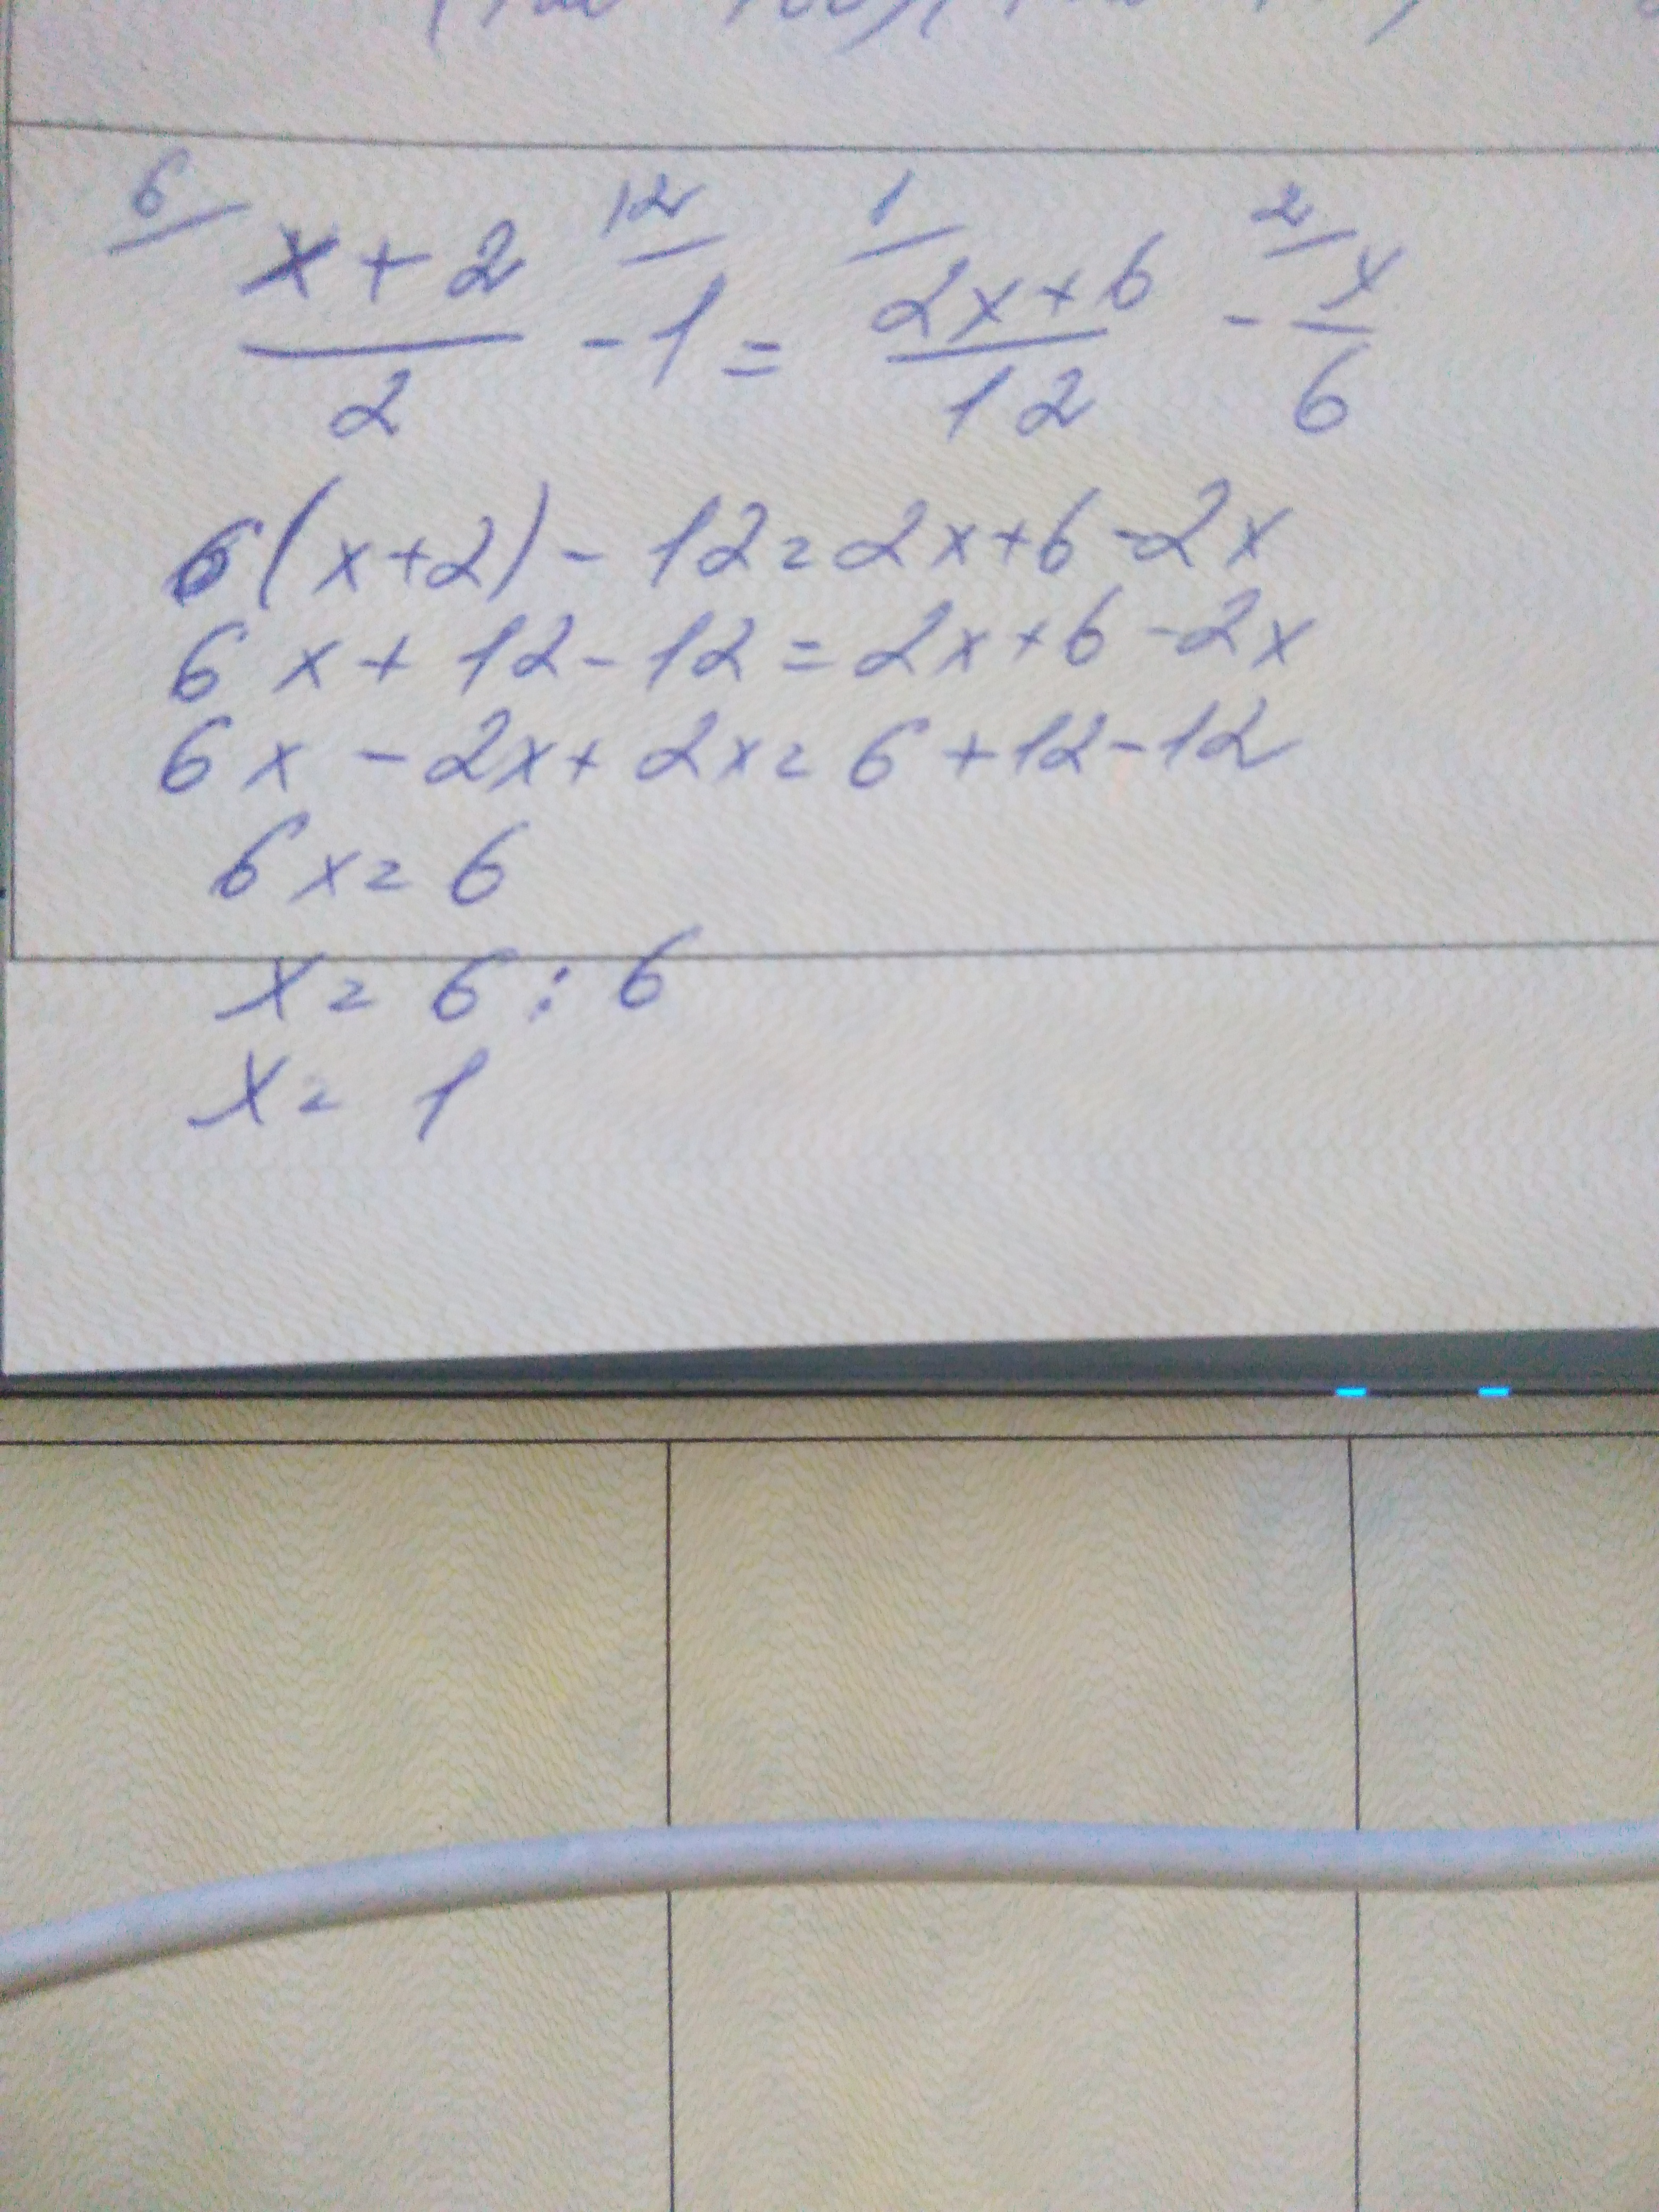 6/ 12/ 1/ 2/
x+2/2 - 1 = 2x+6/12 - x/6
6(x+2) - 12 = 2x+6-2x
6x + 12 - 12 = 2x+6-2x
6x - 2x + 2x = 6 + 12 - 12
6x = 6
x = 6 : 6
x = 1